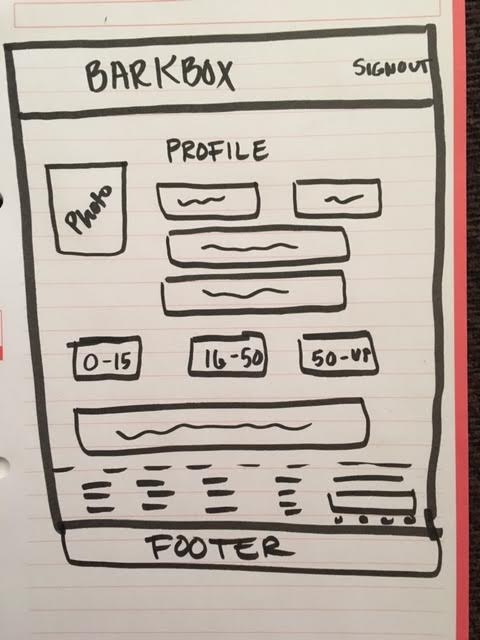 BARKBOX SIGNOUT
PROFILE
Photo
0-15 16-50 50-UP
FOOTER